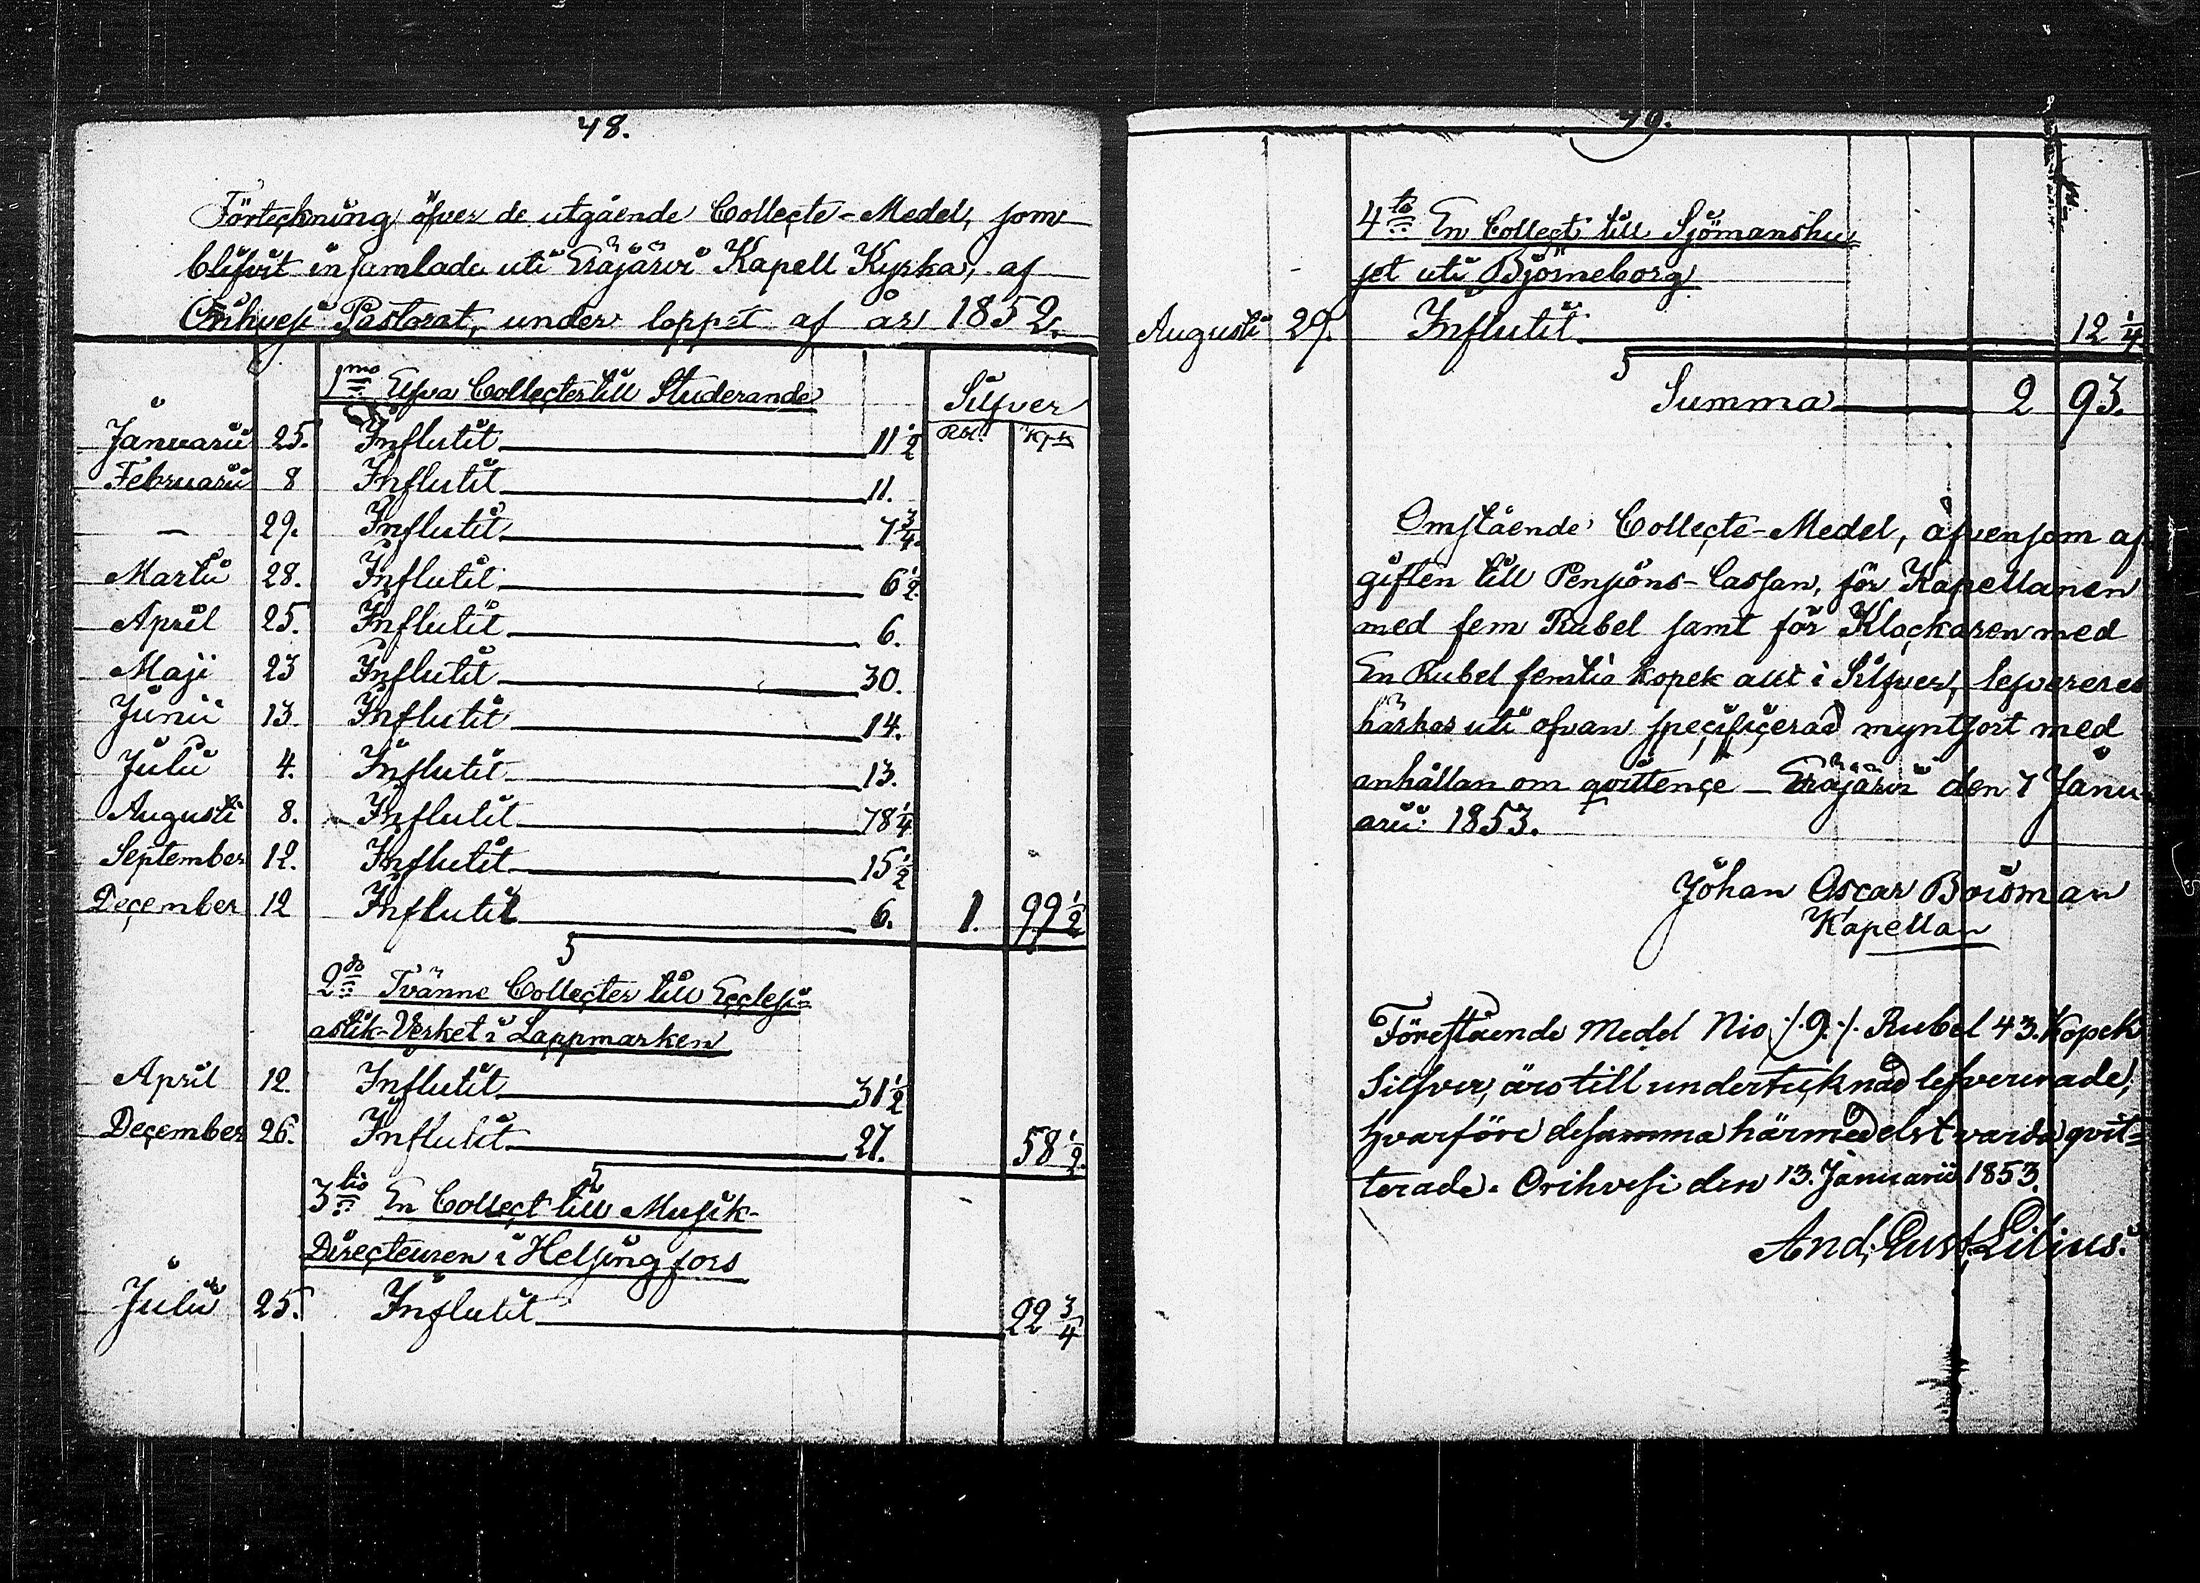 48.
Förteckning öfver de utgående Collecte-Medel, som
blifvit insamlade uti Eräjärvi Kapell Kyrka, af
Orihvesi Pastorat, under loppet af år 1852.
1mo Elfva Collecter till Studerande Silfver
Rbl. Kpk
Januarii 25. Influtit 11 1/2
Februarii 8 Influtit 11.
— 29. Influtit 7 3/4.
Martii 28. Influtit 6 1/2.
April 25. Influtit 6.
Maji 23 Influtit 30.
Junii 13. Influtit 14.
Julii 4. Influtit 13.
Augusti 8. Influtit 78 1/4
September 12. Influtit 15 1/2
December 12 Influtit 6. 1. 99 1/2
2do Tvänne Collecter till Ecclesi=
astik-Verket i Lappmarken
April 12. Influtit 31 1/2
December 26. Influtit 27. 58 1/2.
3tio En Collect till Musik-
Directeuren i Helsingfors
Julii 25. Influtit 22 3/4
49.
4to En Collect till Sjömanshu=
set uti Björneborg
Augusti 29. Influtit 12 1/4
Summa 2 93.
Omstående Collecte-Medel, äfvensom af
giften till Pensions-Cassan, för Kapellanen
med fem Rubel samt för Klockaren med
En Rubel femtio kopek allt i Silfver, lefvereres
härhos uti ofvan specificerad myntsort med
anhållan om qvittence — Eräjärvi den 7 Janu-
arii 1853.
Johan Oscar Boisman
Kapellan
Förestående Medel Nio /.9./. Rubel 43. Kopek
Silfver, äro till undertecknad lefvererade,
hvarföre desamma härmedelst varda qvit=
terade. Orihvesi den 13. Januarii 1853.
And. Gust. Lilius.